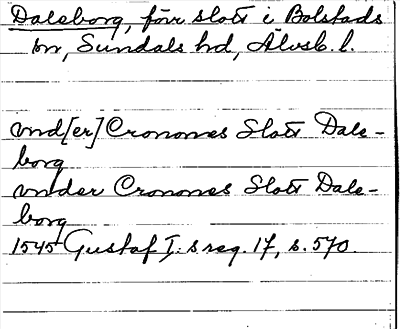 Daleborg, förr slott i Bolstads
sn, Sundals hd, Älvsb. l.
vnd[er] Cronones Slott Dale-
borg
vnder Cronones Slott Dale-
borg
1545 Gustaf I:s reg. 17, s. 570.